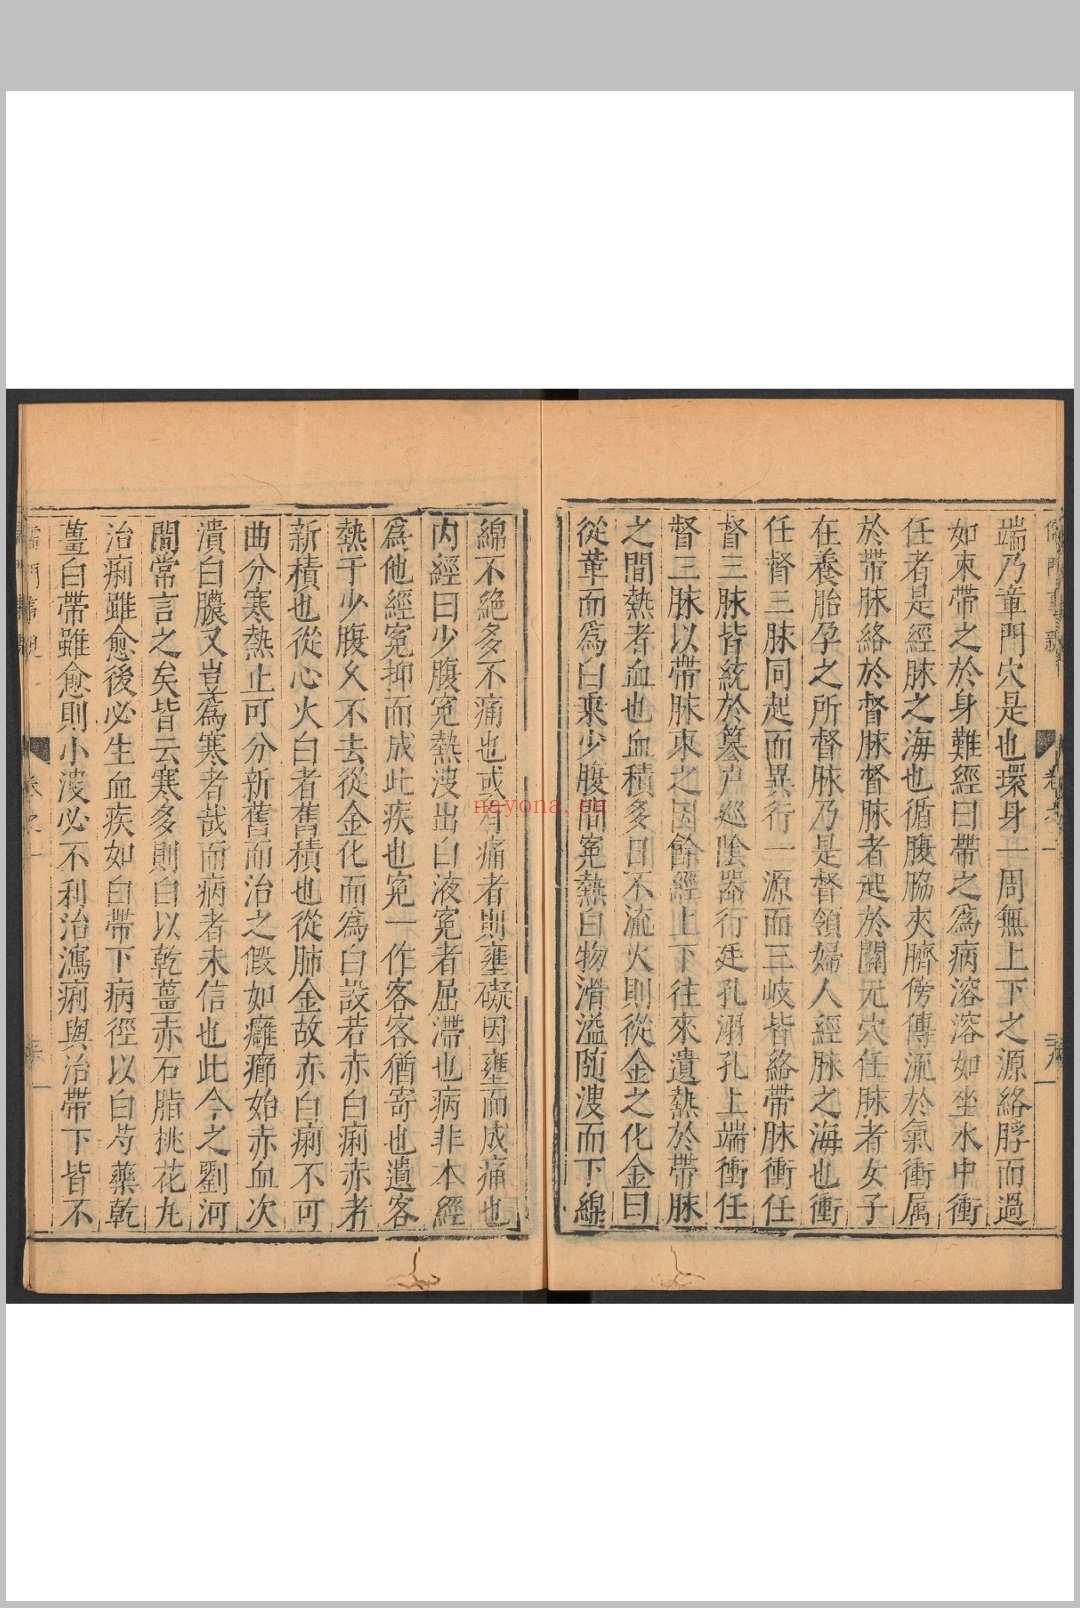 端乃章門穴是也環身一周無上下之源絡脬而過
如束帶之於身難經曰帶之爲病溶溶如坐水中衝
任者是經脉之海也循腹脇夾臍傍傳流於氣衝属
於帶脉絡於督脉督脉者起於關元穴任脉者女子
在養胎孕之所督脉乃是督領婦人經脉之海也衝
任督三脉同起而異行一源而三岐皆絡帶脉衝任
督三脉皆統於篡户巡陰器行廷孔溺孔上端衝任
督三脉以帶脉束之因餘經上下往來遺熱於帶脉
之間熱者血也血積多日不流火則從金之化金曰
從革而爲白乗少腹間寃熱白物滑溢随溲而下綿
綿不絶多不痛也或有痛者則壅礙因壅而成痛也
内經曰少腹寃熱溲出白液寃者屈滯也病非本經
爲他經寃抑而成此疾也寃一作客客猶寄也遺客
熱于少腹乆不去從金化而爲白設若赤白痢赤者
新積也從心火白者舊積也從肺金故赤白痢不可
曲分寒熱止可分新舊而治之假如癰癤始赤血次
潰白膿又豈爲寒者哉而病者未信也此今之劉河
間常言之矣皆云寒多則白以乾薑赤石脂桃花丸
治痢雖愈後必生血疾如白帶下病徑以白芍藥乾
薑白帶雖愈則小溲必不利治瀉痢與治帶下皆不
nayona.cn